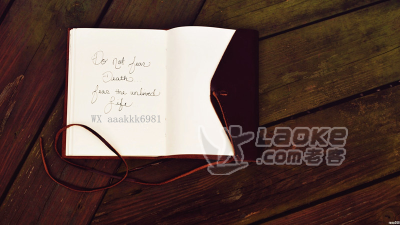 Do Not fear
Death
fear the unloved
Life
WX aaakkk6981
LAOKE
.com老客